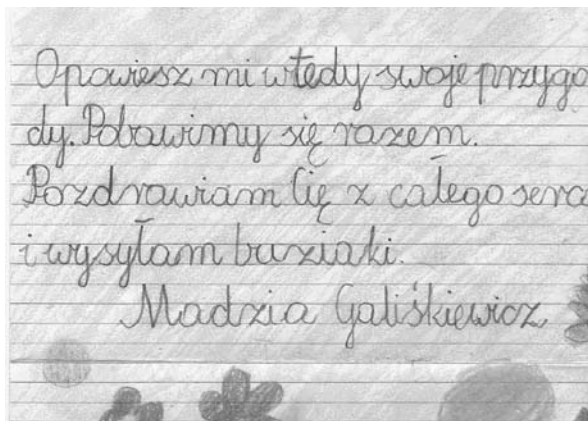 Opowiesz mi wtedy swoje przygo
dy. Pobawimy się razem.
Pozdrawiam Cię z całego serc
i wysyłam buziaki.
Madzia Galiśkiewicz